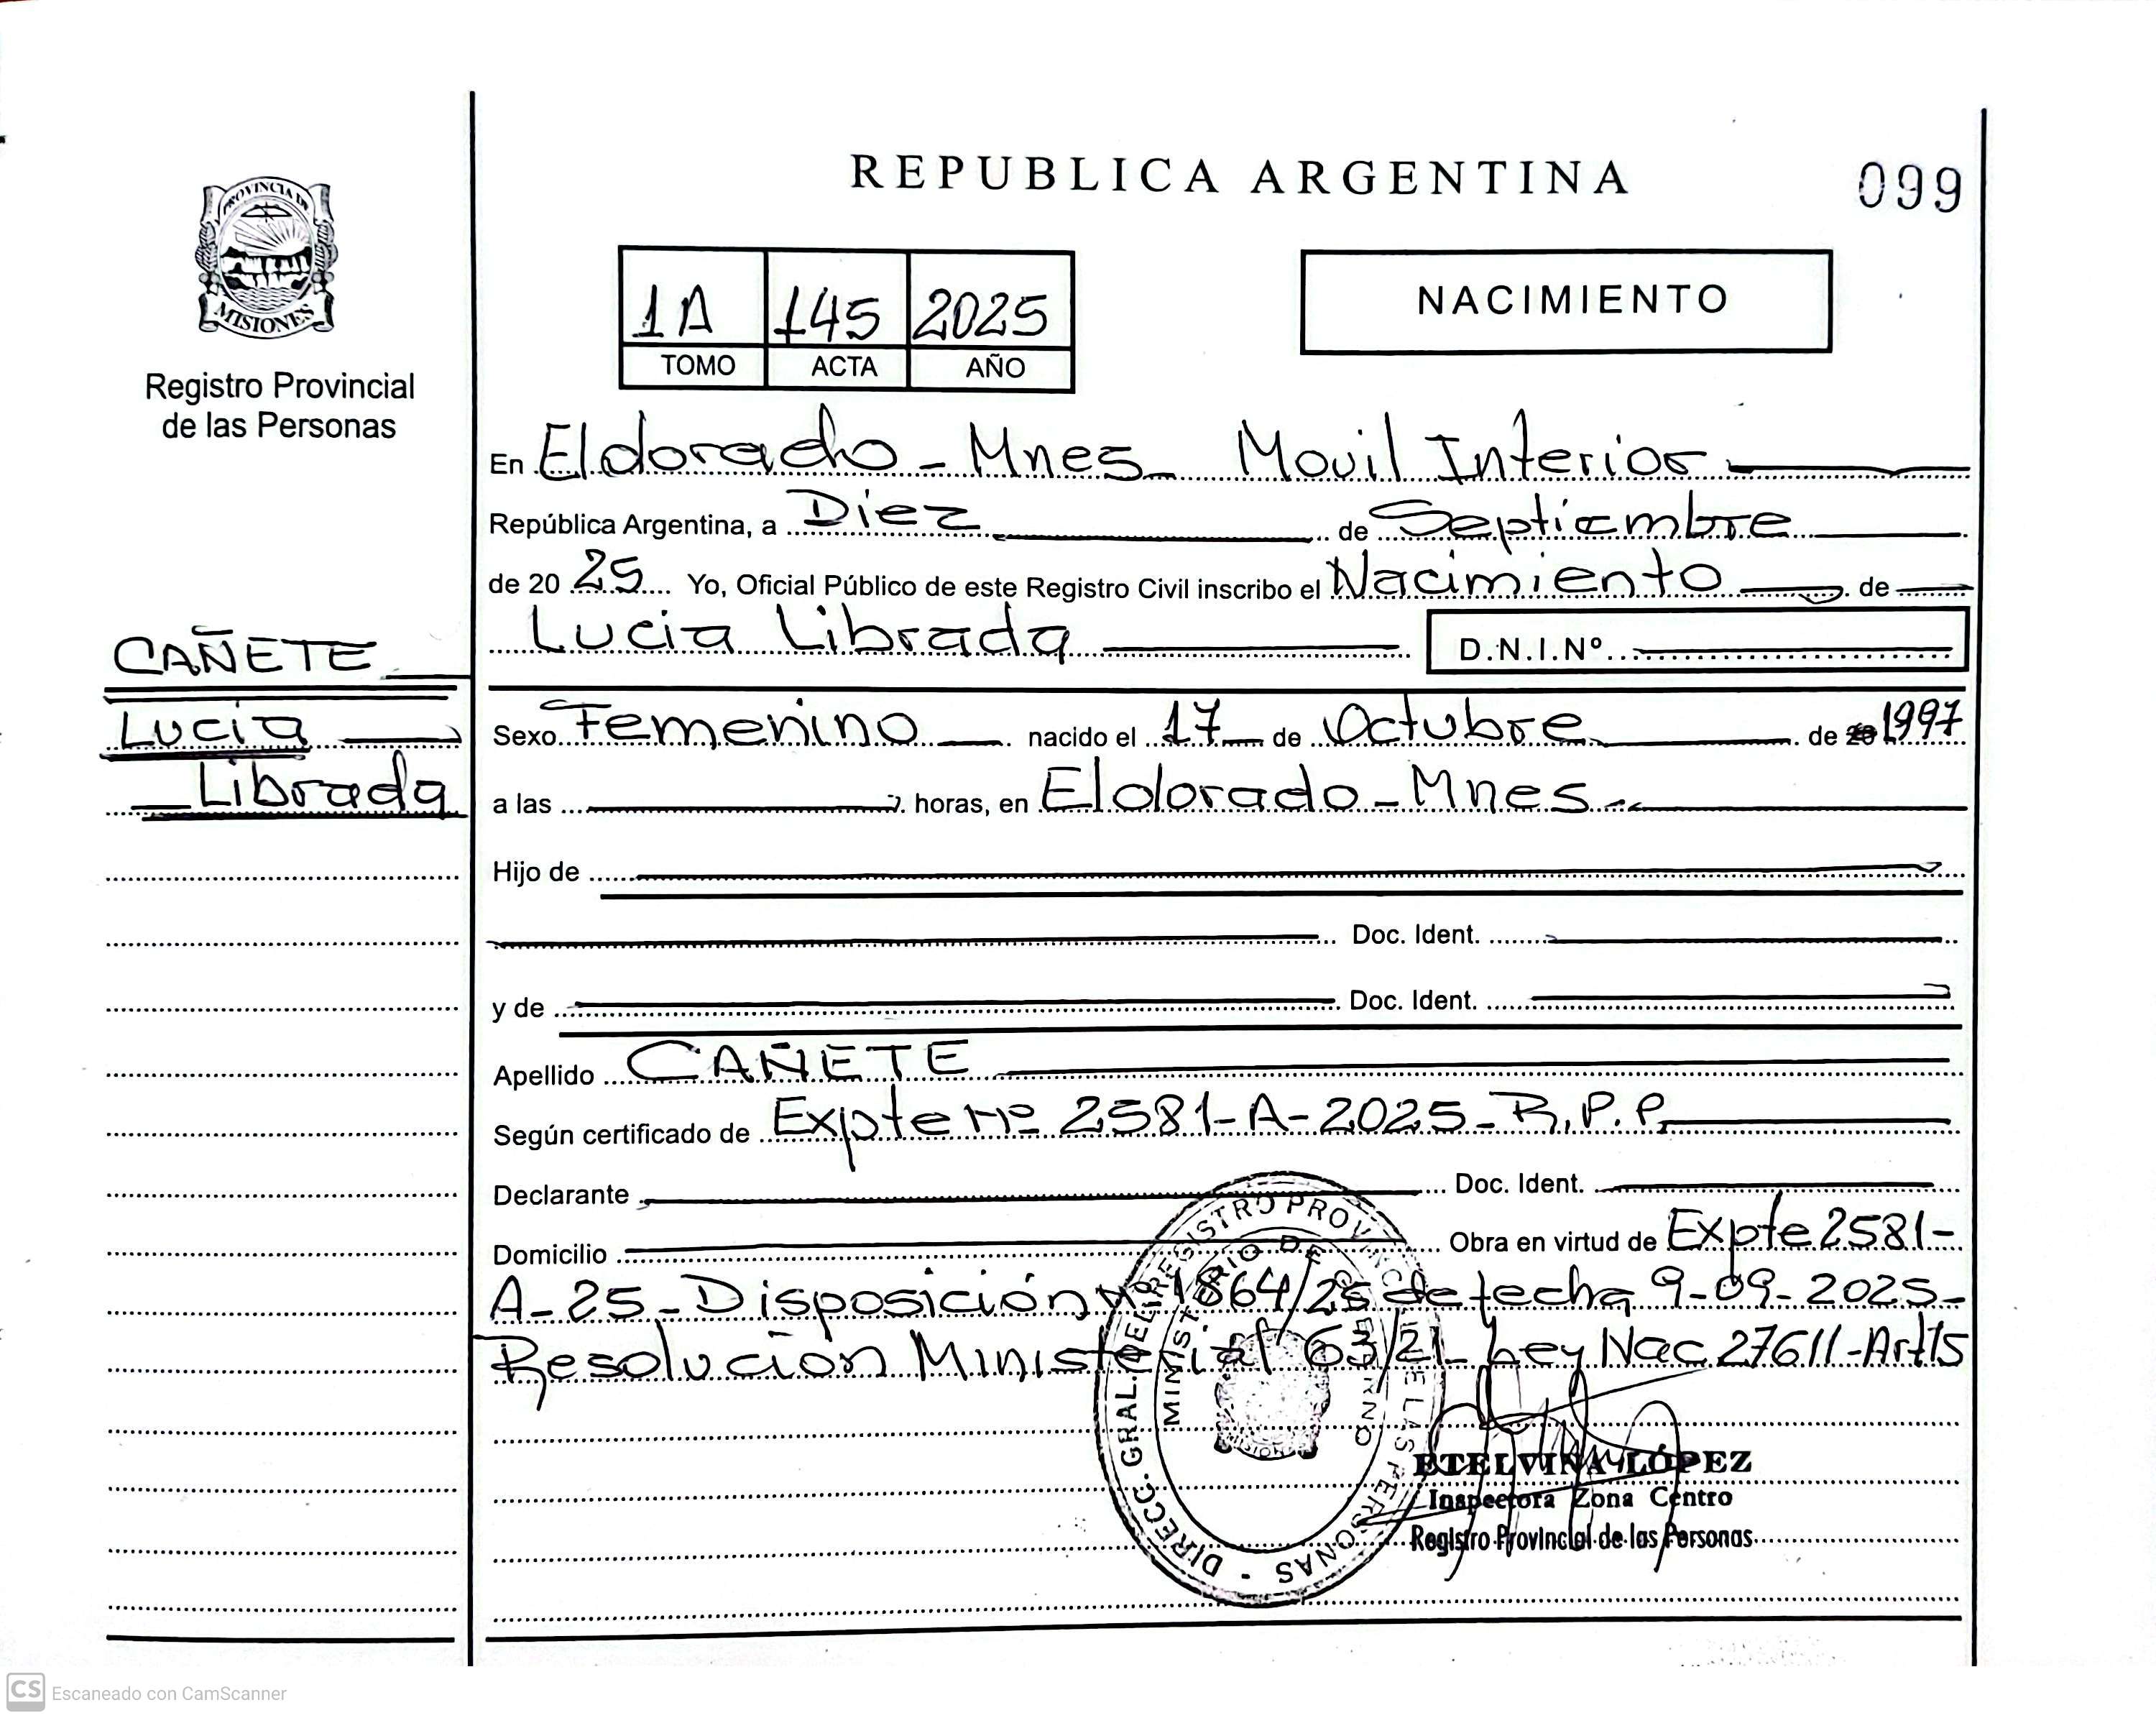 REPUBLICA ARGENTINA
099
PROVINCIA DE
MISIONES
Registro Provincial
de las Personas
1A 145 2025
TOMO ACTA AÑO
NACIMIENTO
En Eldorado - Mnes - Movil Interior
República Argentina, a Diez de Septiembre
de 20 25 Yo, Oficial Público de este Registro Civil inscribo el Nacimiento de
Lucia Librada D.N.I.Nº
CAÑETE
Lucia
Librada
Sexo Femenino nacido el 17 de Octubre de 20 1997
a las horas, en Eldorado - Mnes -
Hijo de
Doc. Ident.
y de Doc. Ident.
Apellido CAÑETE
Según certificado de Expte Nº 2581-A-2025- R.P.P.
Declarante Doc. Ident.
Domicilio Obra en virtud de Expte 2581-
A-25-Disposición Nº 1864/25 de fecha 9-09-2025-
Resolución Ministerial 63/21- Ley Nac 27611-Art15
DIRECC. GRAL. DEL REGISTRO PROVINCIAL DE LAS PERSONAS -
MINISTERIO DE GOBIERNO
MISIONES
ETELVINA LÓPEZ
Inspectora Zona Centro
Registro Provincial de las Personas
CS Escaneado con CamScanner